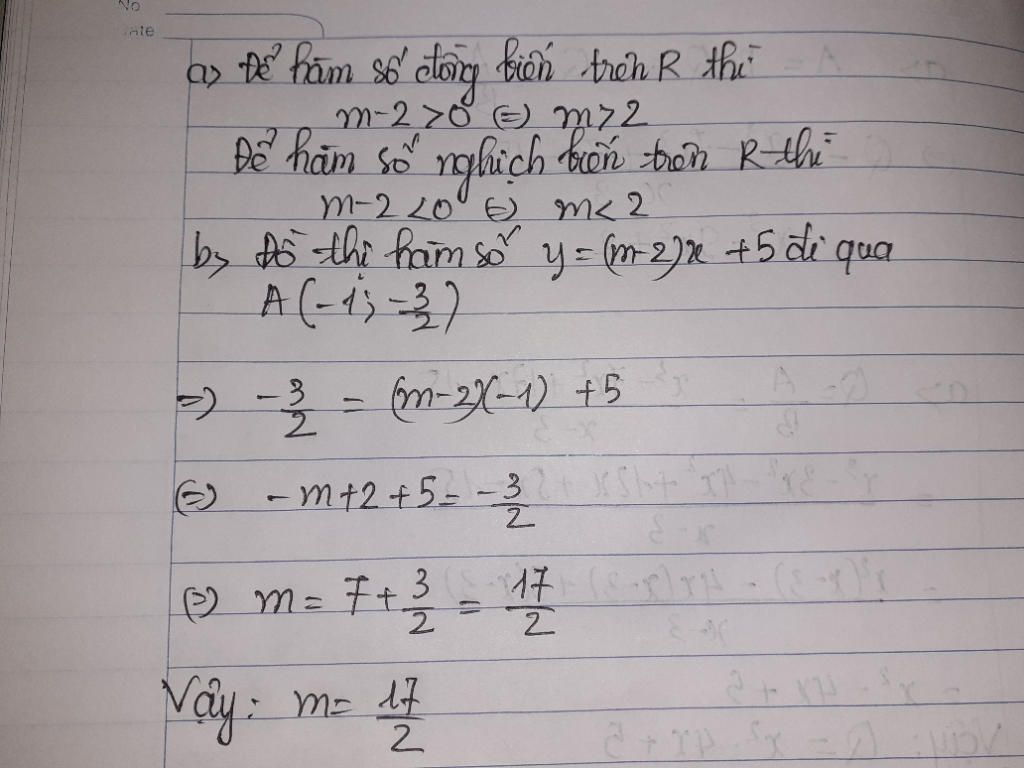 No
ate
a> Để hàm số đồng biến trên R thì
m-2 >0 ⇔ m>2
Để hàm số nghịch biến trên R thì
m-2 <0 ⇔ m<2
b> Đồ thị hàm số y = (m-2)x +5 đi qua
A (-1; -3/2)
=> -3/2 = (m-2)(-1) +5
⇔ -m+2+5 = -3/2
⇔ m = 7+3/2 = 17/2
Vậy: m= 17/2